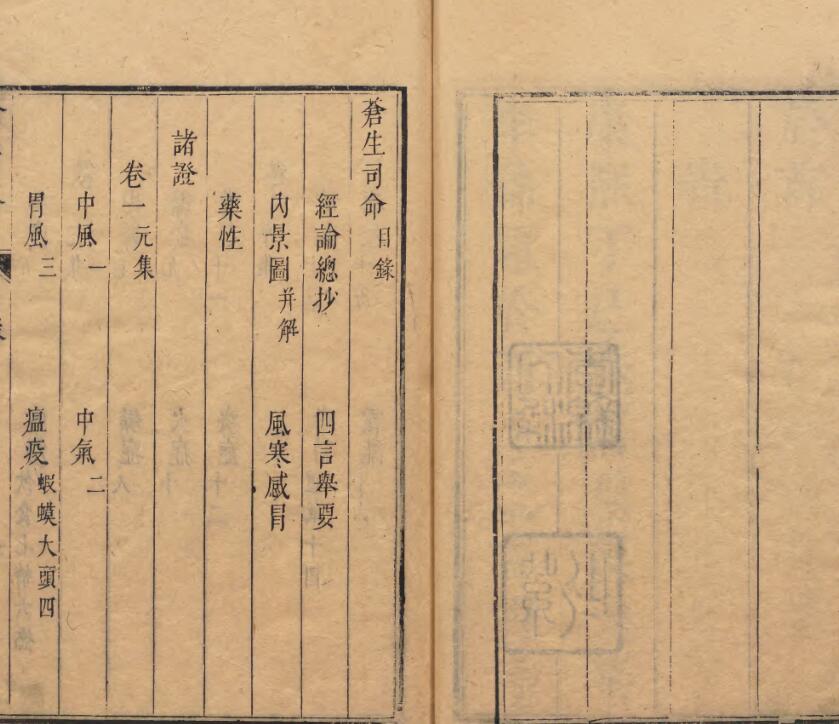 蒼生司命目錄
經論總抄 四言舉要
內景圖并解 風寒感冒
藥性
諸證
卷一元集
中風一 中氣二
胃風三 瘟疫蝦蟆大頭四